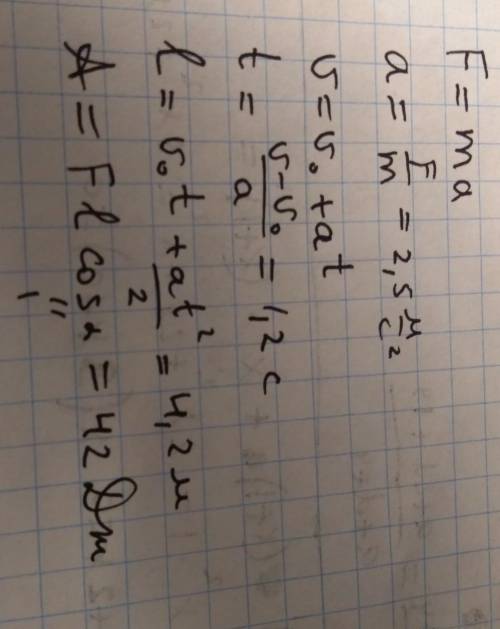 F = ma
a = F/m = 2,5 м/с²
v = v₀ + at
t = (v - v₀)/a = 1,2 с
l = v₀t + at²/2 = 4,2 м
A = Fl cosα = 42 Дж
"
1